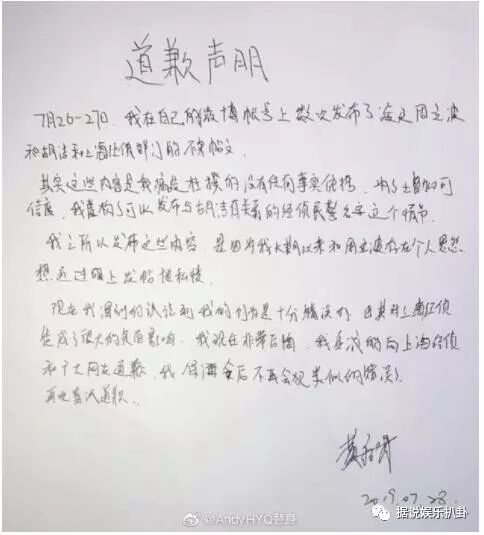 道歉声明
7月26-27日,我在自己的微博帐号上数次发布了涉及周立波
和胡洁和上海经侦部门的不实帖文
其实这些内容是我编造杜撰的没有任何事实依据,为了增加可
信度,我虚构了可以发布与胡洁有关系的经侦民警名字这个情节。
我之所以发布这些内容,是因为我长期以来和周立波存在个人恩怨
想通过网上发帖泄私愤
现在我深刻的认识到我的行为是十分错误的,尤其对上海经侦
造成了很大的负面影响,我现在非常后悔,我真诚的向上海经侦
和广大网友道歉,我保证今后不再会犯类似的错误
再次真诚道歉。
2019.07.28.
@AndyHYQ替身
据说娱乐扒卦